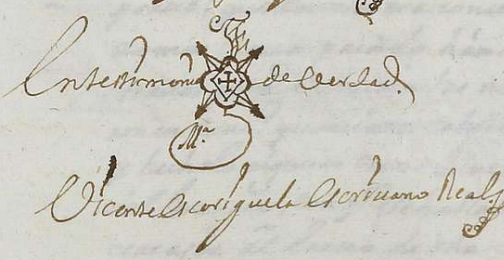 En testimonio de Verdad.
Vicente Escoriguela Escrivano Real